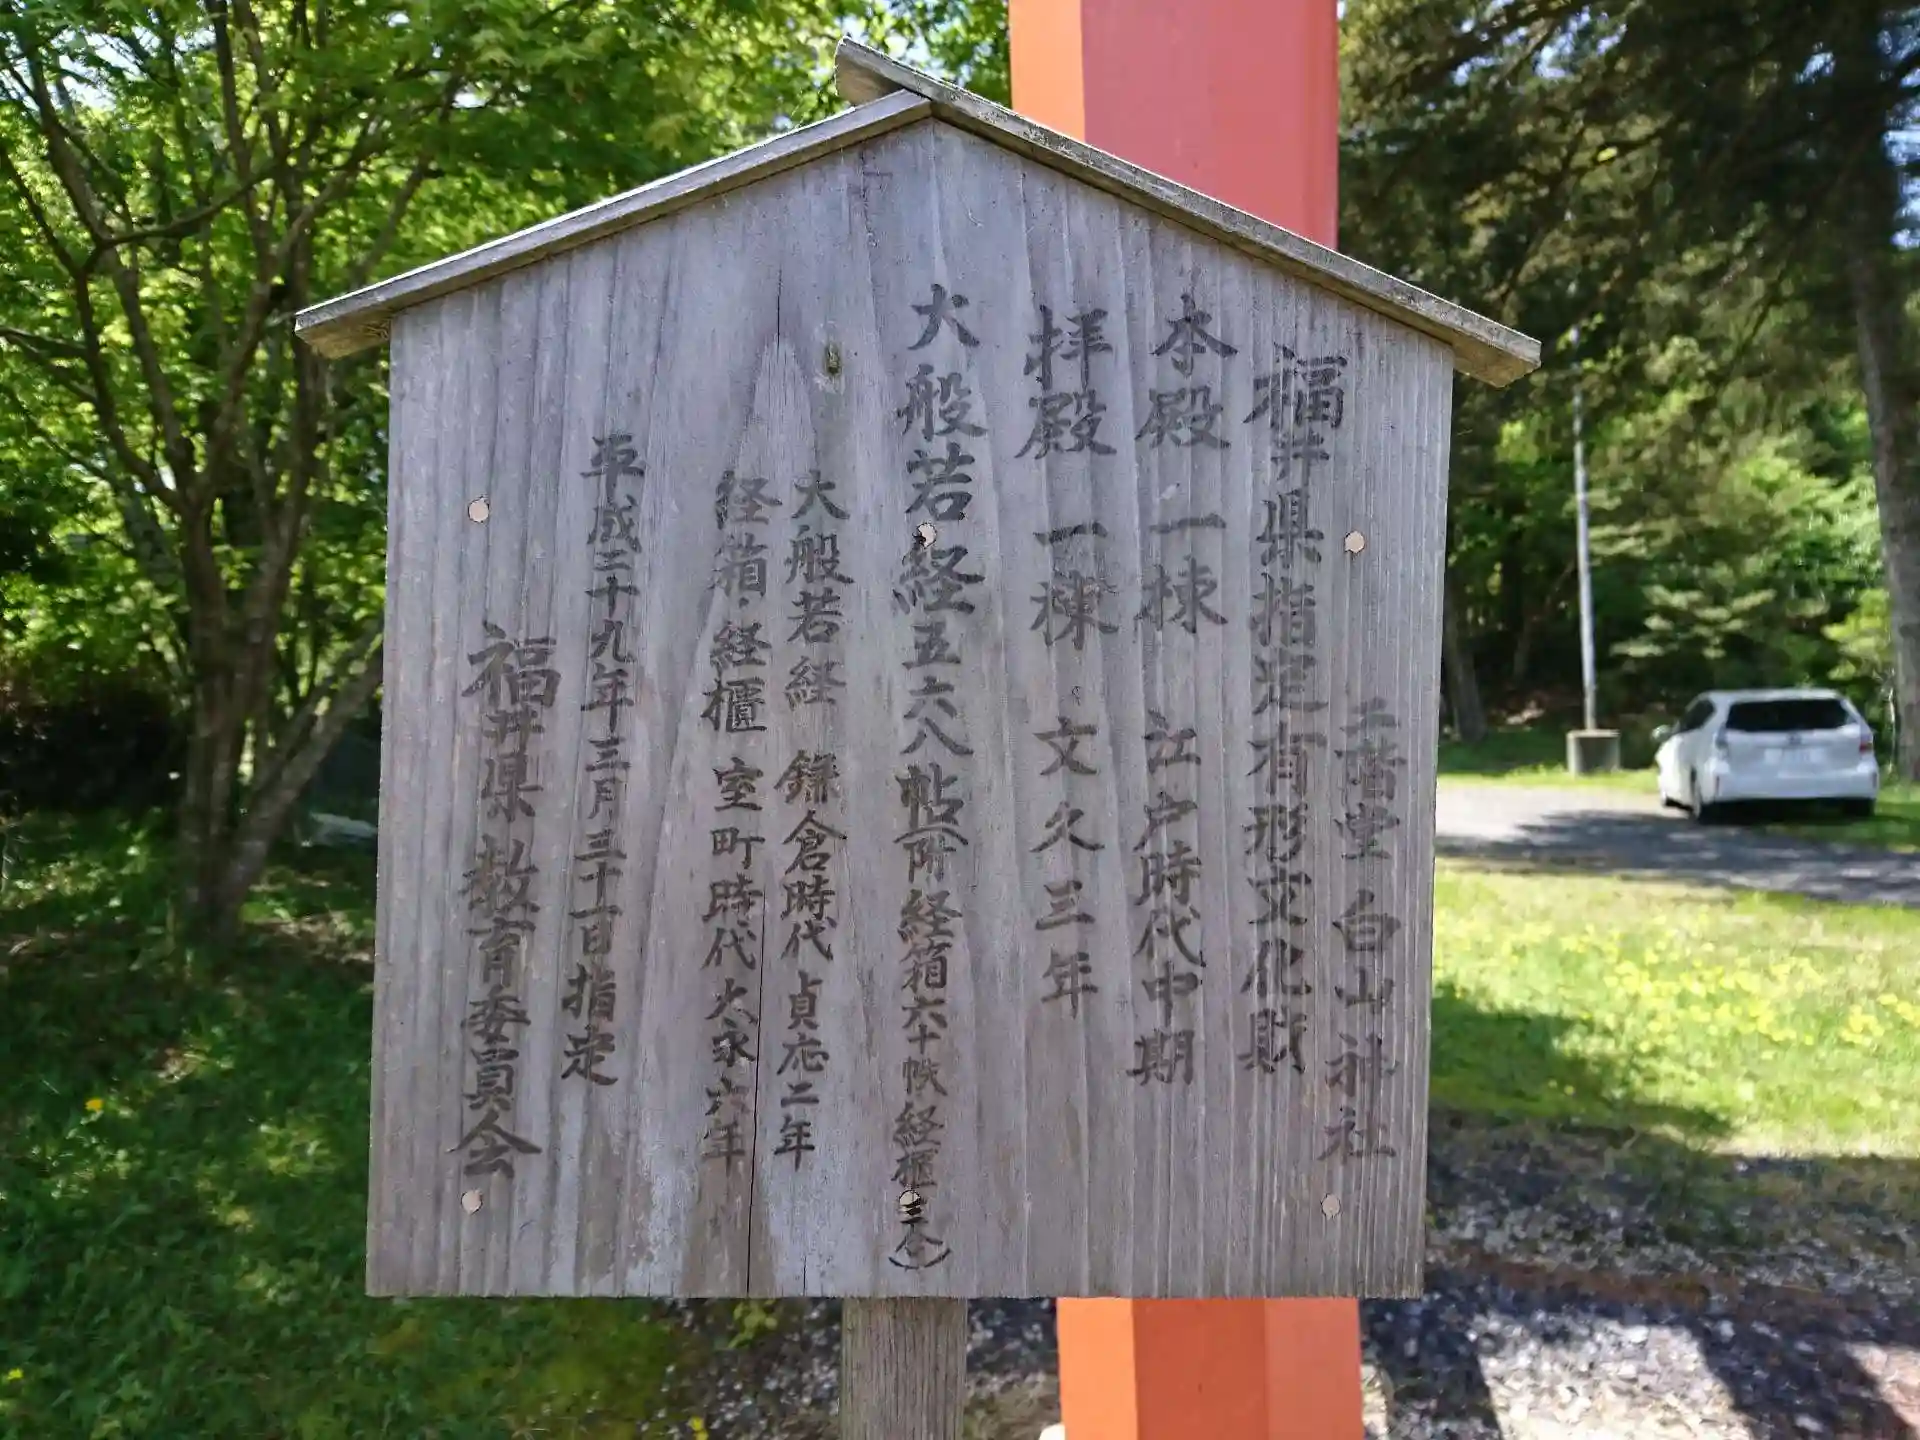 二階堂白山神社
福井県指定有形文化財
本殿 一棟 江戸時代中期
拝殿 一棟 文久三年
大般若経五六八帖(附経箱六十帙経櫃三合)
大般若経 鎌倉時代 貞応二年
経箱・経櫃 室町時代 大永六年
平成二十九年三月三十一日指定
福井県教育委員会